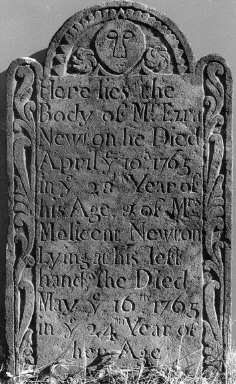 Here lies the
Body of Mr Ezra
Newton he Died
April ye 10th 1765
in ye 28th Year of
his Age, & of Mrs
Malicent Newton
Lying at his left
hand she Died
May ye 16th 1765
in ye 24th Year of
her Age